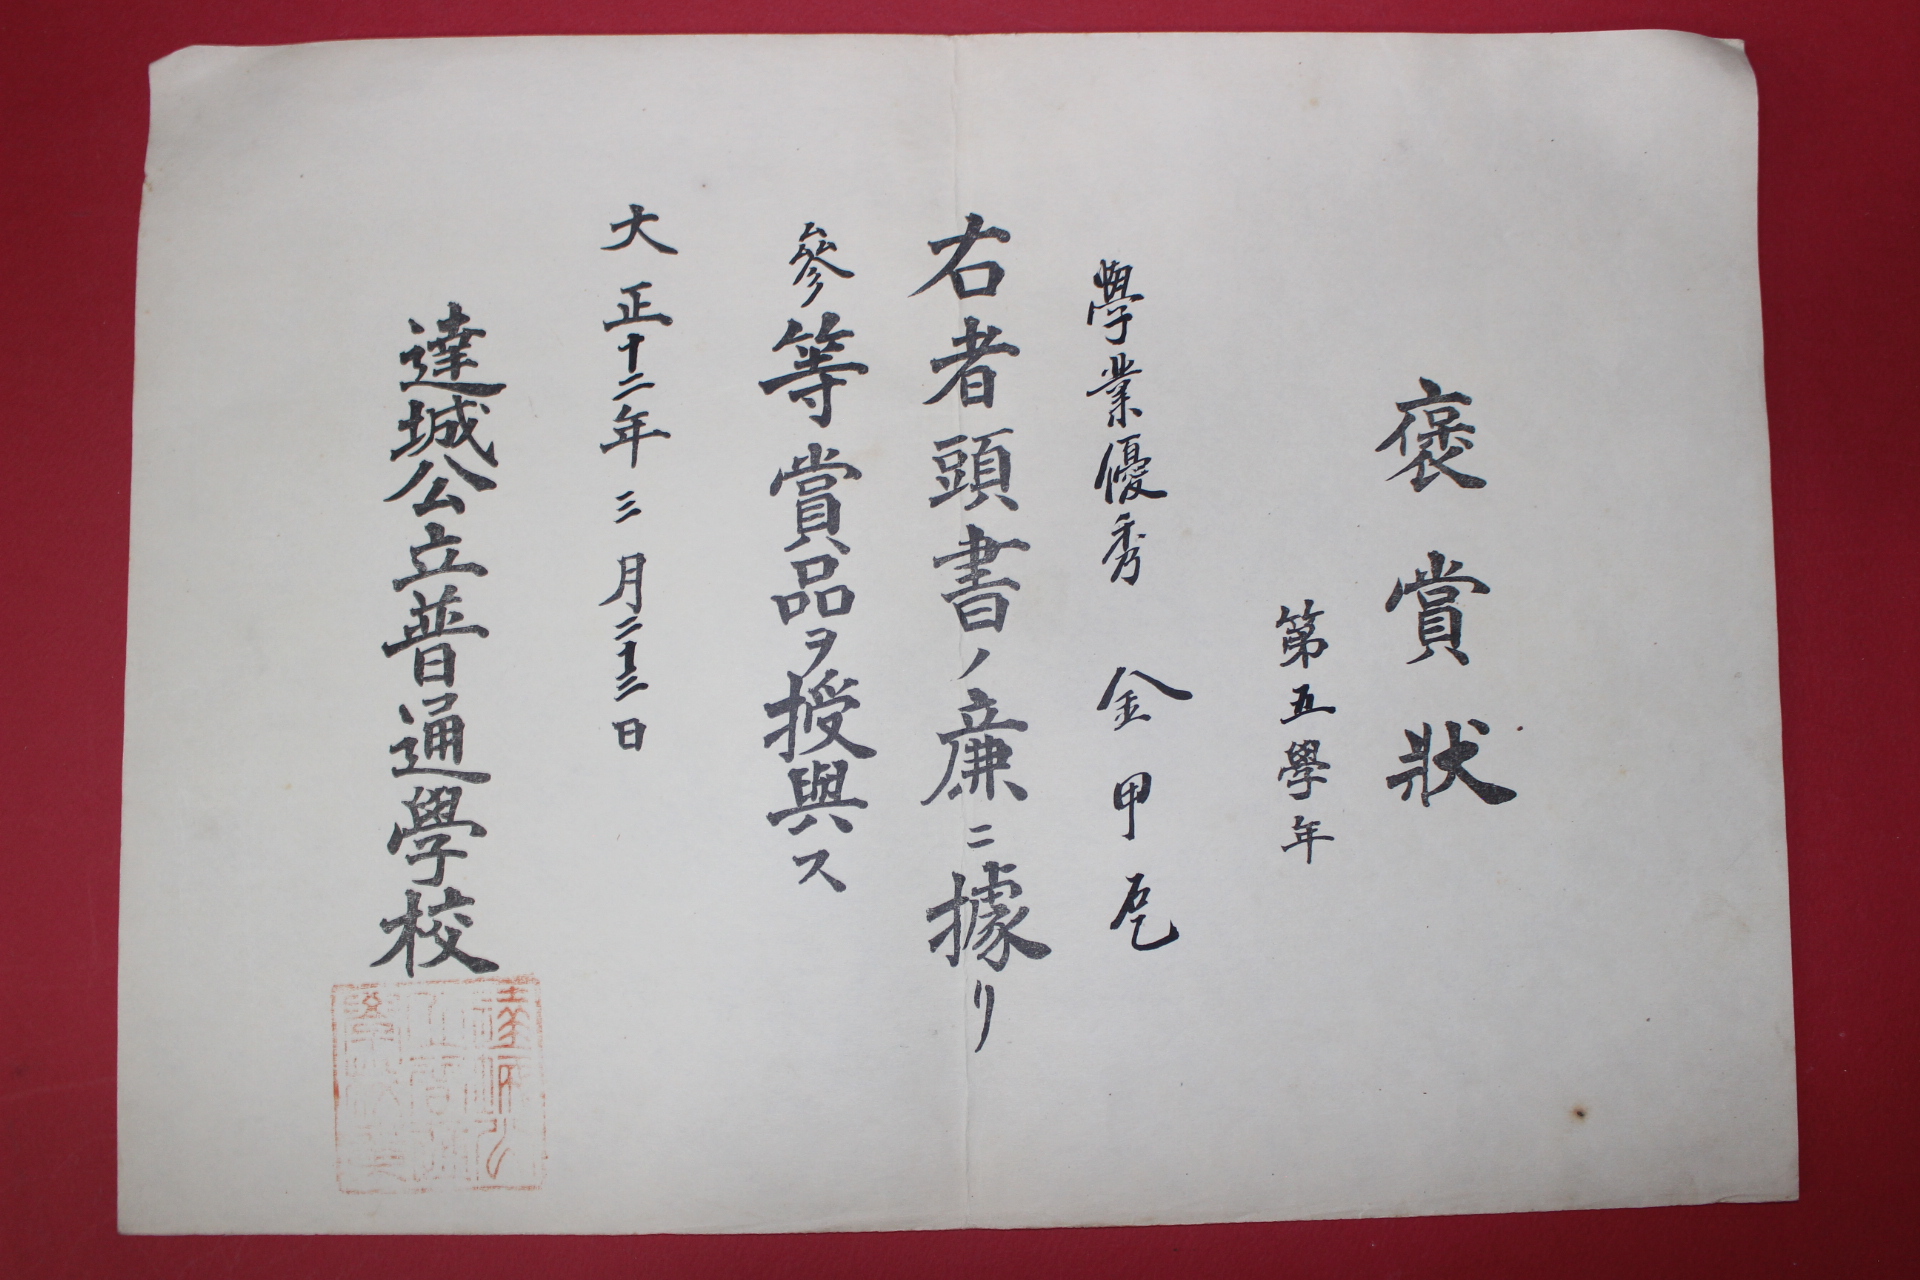 褒賞狀
第五學年
學業優秀 金甲乭
右者頭書ノ廉ニ據リ
參等賞品ヲ授與ス
大正十二年三月二十三日
達城公立普通學校
達城公
立普通
學校